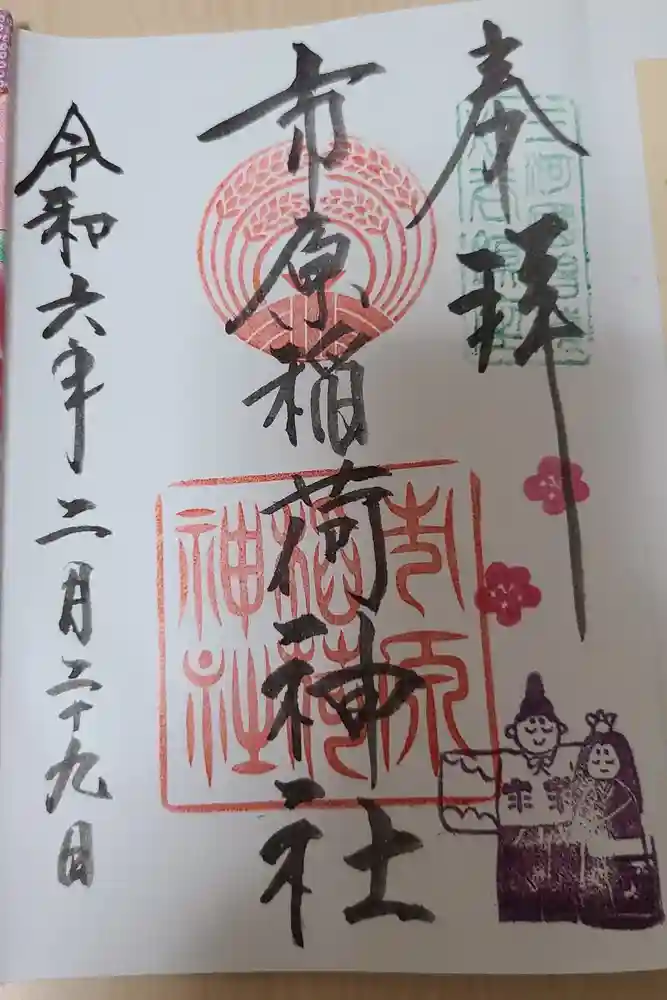 奉拝
市原稲荷神社
市原
稲荷
神社
令和六年二月二十九日